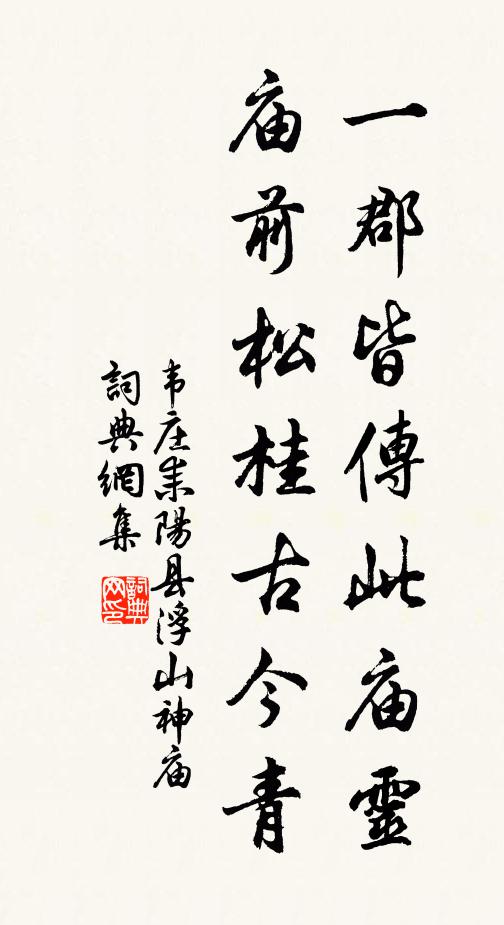 一郡皆傳此庙靈
庙前松桂古今青
韦庄耒陽县浮山神庙
詞典網集
詞典
网印